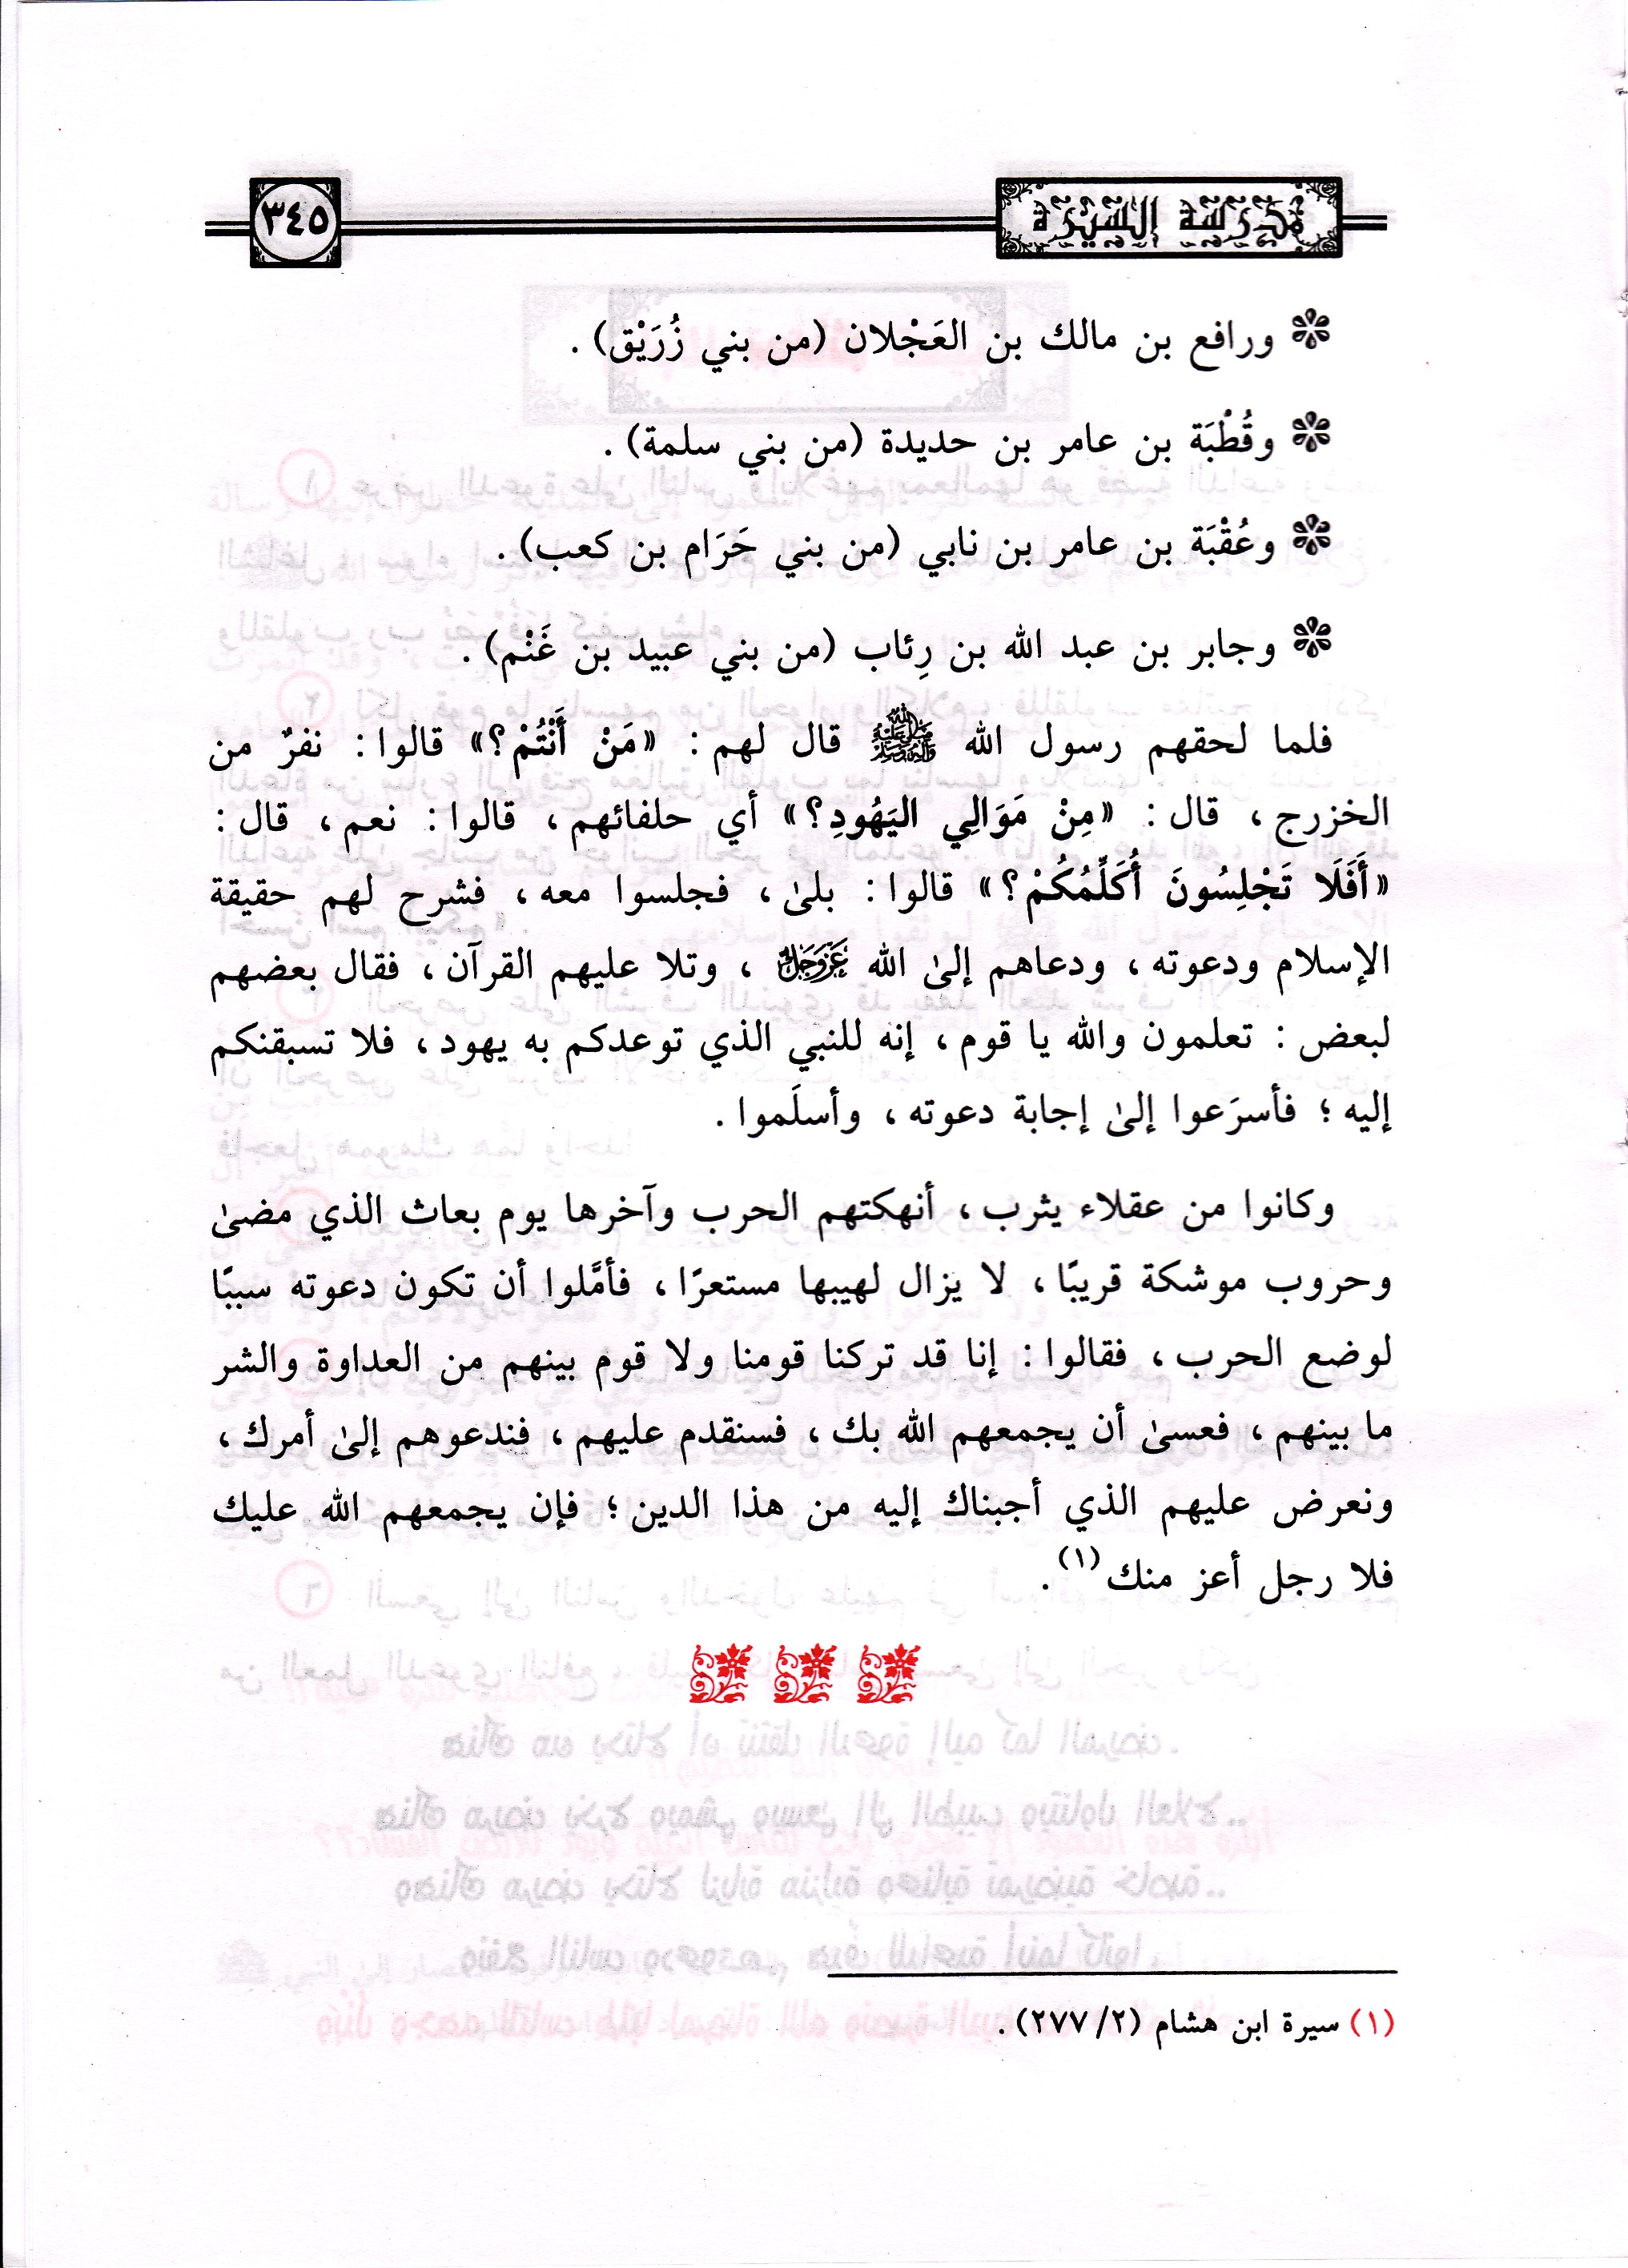 مدرسة السيرة
٣٤٥
ورافع بن مالك بن العَجْلان (من بني زُرَيْق) .
وقُطْبَة بن عامر بن حديدة (من بني سلمة) .
وعُقْبَة بن عامر بن نابي (من بني حَرَام بن كعب) .
وجابر بن عبد الله بن رِئاب (من بني عبيد بن غَنْم) .
فلما لحقهم رسول الله ﷺ قال لهم : «مَنْ أَنْتُمْ؟» قالوا : نفرٌ من
الخزرج ، قال : «مِنْ مَوَالِي اليَهُودِ؟» أي حلفائهم ، قالوا : نعم ، قال :
«أَفَلَا تَجْلِسُونَ أُكَلِّمُكُمْ؟» قالوا : بلىٰ ، فجلسوا معه ، فشرح لهم حقيقة
الإسلام ودعوته ، ودعاهم إلىٰ الله عَزَّوَجَلَّ ، وتلا عليهم القرآن ، فقال بعضهم
لبعض : تعلمون والله يا قوم ، إنه للنبي الذي توعدكم به يهود ، فلا تسبقنكم
إليه ؛ فأسرَعوا إلىٰ إجابة دعوته ، وأسلَموا .
وكانوا من عقلاء يثرب ، أنهكتهم الحرب وآخرها يوم بعاث الذي مضىٰ
وحروب موشكة قريبًا ، لا يزال لهيبها مستعرًا ، فأمَّلوا أن تكون دعوته سببًا
لوضع الحرب ، فقالوا : إنا قد تركنا قومنا ولا قوم بينهم من العداوة والشر
ما بينهم ، فعسىٰ أن يجمعهم الله بك ، فسنقدم عليهم ، فندعوهم إلىٰ أمرك ،
ونعرض عليهم الذي أجبناك إليه من هذا الدين ؛ فإن يجمعهم الله عليك
فلا رجل أعز منك (١) .
(١) سيرة ابن هشام (٢/ ٢٧٧) .